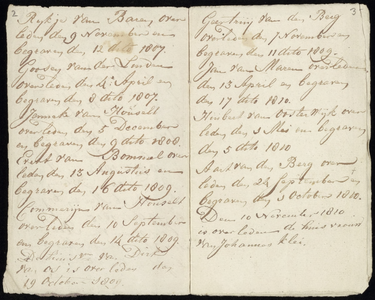 2
Rykje van Baren over
leden den 9 November en
begraven den 12 dito 1807.
Gerrit van der Linden
overleden den 4 April en
begraven den 8 dito 1807
Janneke van Honselt
overleden den 5 December
en begraven den 9 dito 1808.
Evert van Bommel over
leden den 13 Augustus en
begraven den 16 dito 1809.
Commerijn van Honselt
overleden den 10 September
en begraven den 14 dito 1809
van Dirk
van Os is overleden den
19 October 1809
3
van den Berg
overleden den 7 November en
begraven den 11 dito 1809.
Jan van Maren overleden
den 13 April en begraven
den 17 dito 1810.
Huibert van Oosterwyk over
leden den 3 Mei en begraven
den 5 dito 1810
Aart van den Berg over
leden den 28 September en
begraven den 3 October 1810.
Den 10 November 1810
is overleden de huisvrouw
van Johannes Klei.